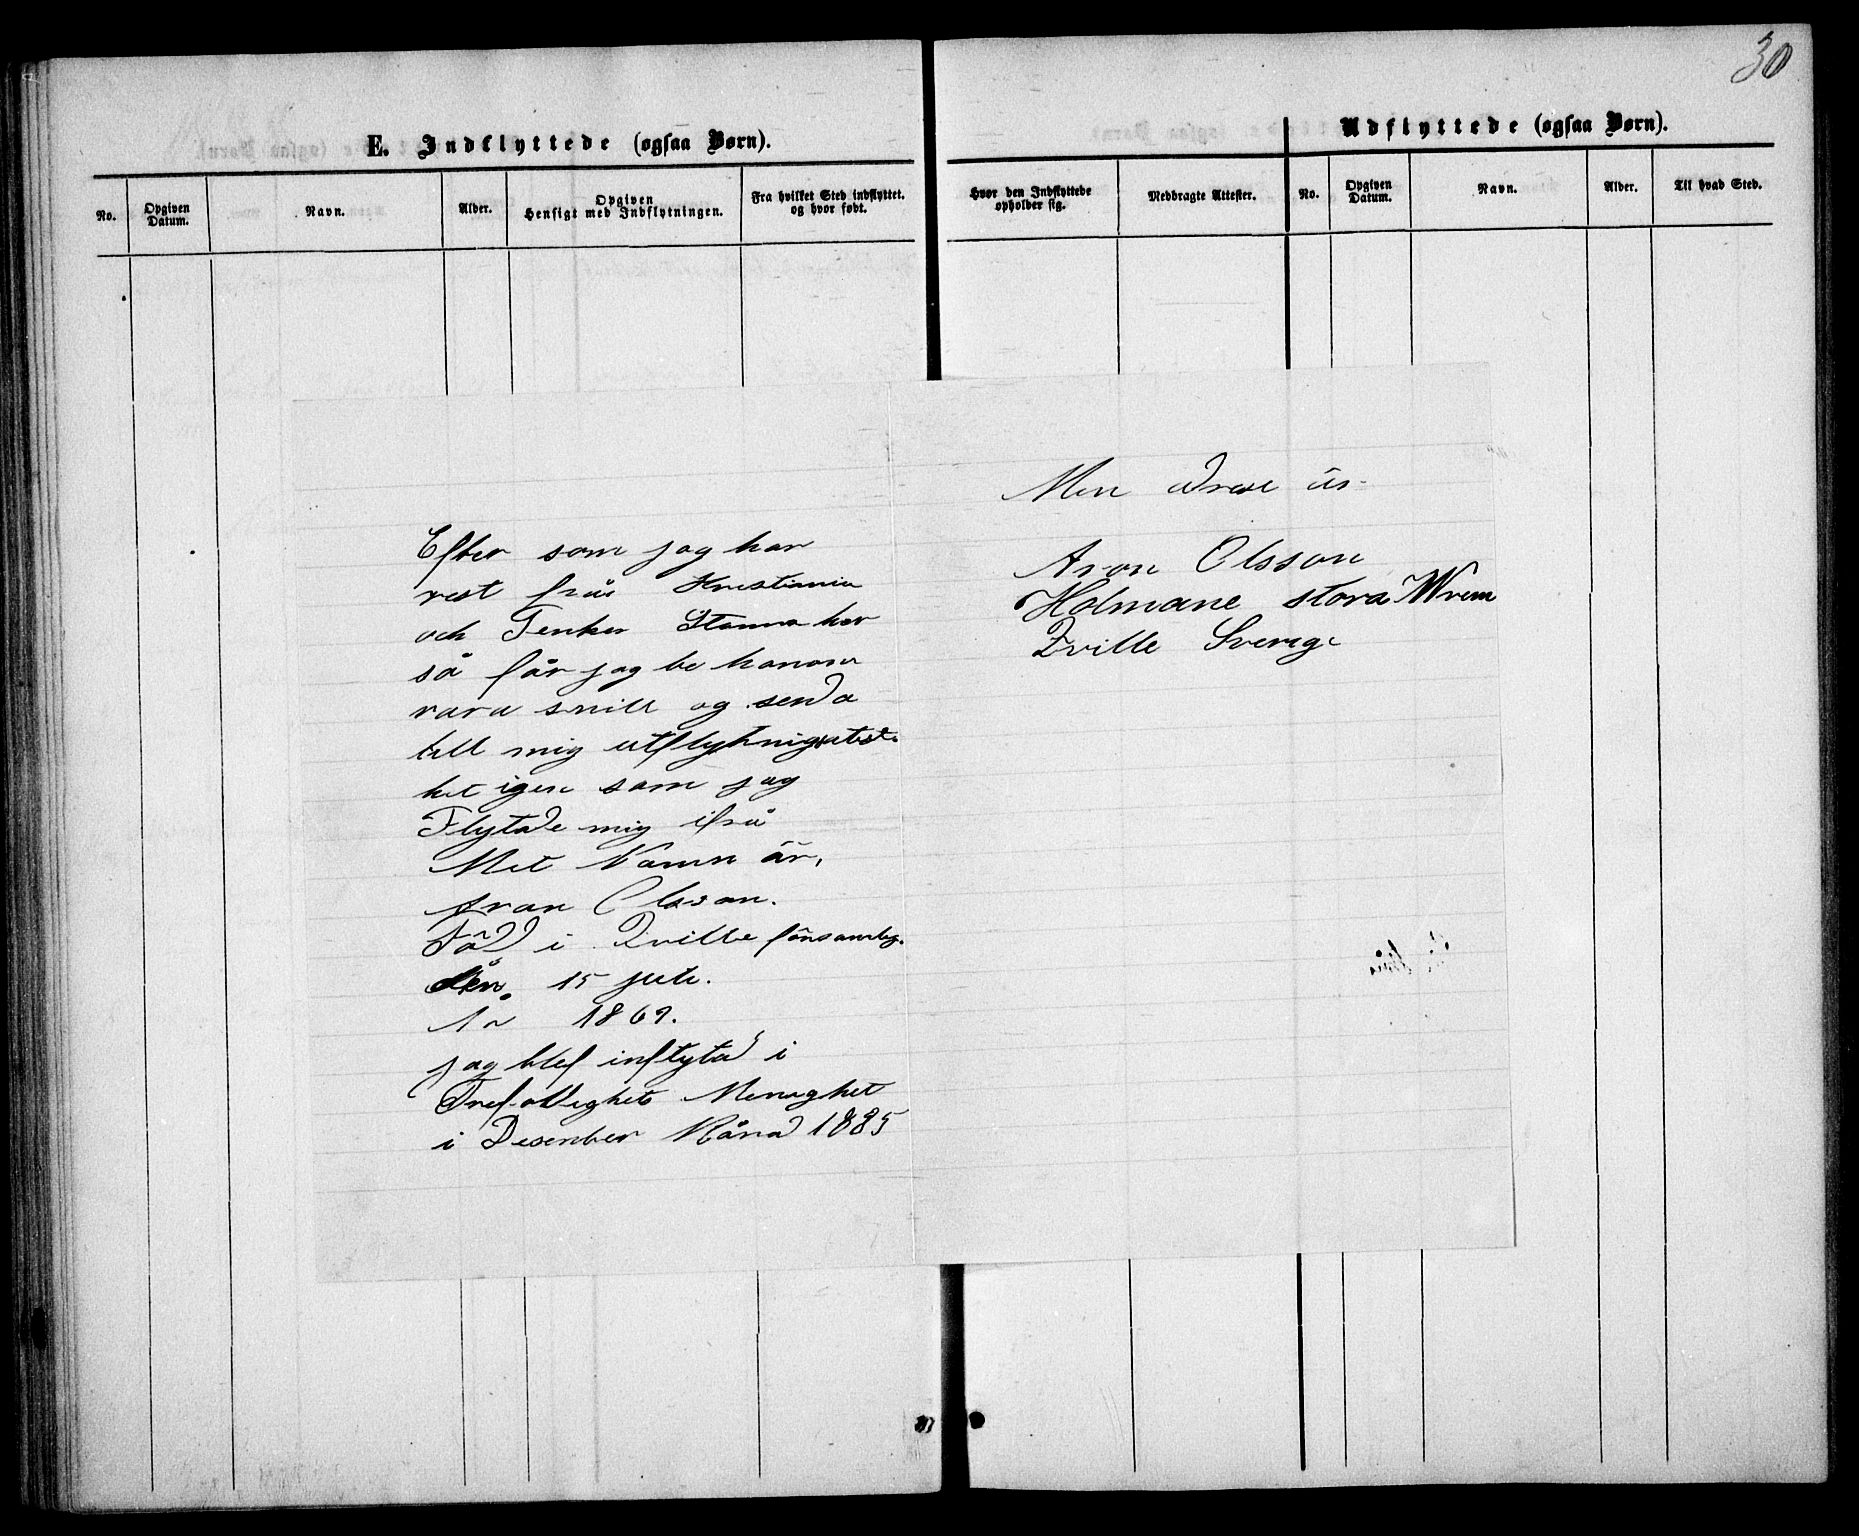 30
E. Indflyttede (ogsaa Børn).
Udflyttede (ogsaa Børn).
No.
Opgiven Datum.
Navn.
Alder.
Opgiven Hensigt med Indflytningen.
Fra hvilket Sted indflyttet. og hvor født.
Hvor den Indflyttede opholder sig.
Meddragte Attester.
No.
Opgiven Datum.
Navn.
Alder.
Til hvad Sted.
Efter som jag har
rest från Kristiania
och Tenker Stanna her
så får jag be honom
vara snill og senda
till mig utflytnigsatest
het igen som jag
Flytade mig ifrå
Mit Namn är,
Aron Olsson.
Föd i Qville församlig.
den 15 juli.
År 1869.
jag blef inflytad i
Trefoldighets Menighet
i Desember Månad 1885
Min adrese är
Aron Olsson
Holmane stora Wrem
Qville Sverige